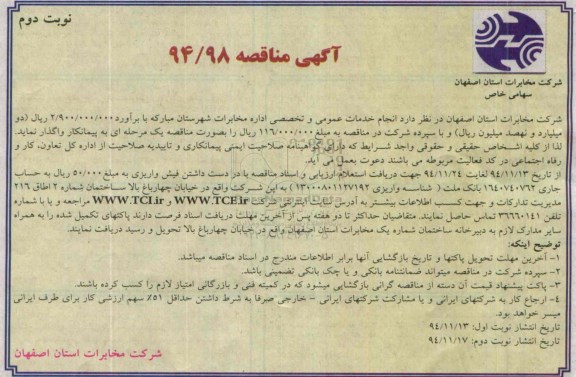 نوبت دوم
آگهی مناقصه ۹۴/۹۸
شرکت مخابرات استان اصفهان
سهامی خاص
شرکت مخابرات استان اصفهان در نظر دارد انجام خدمات عمومی و تخصصی اداره مخابرات شهرستان مبارکه با برآورد ۲/۹۰۰/۰۰۰/۰۰۰ ریال (دو
میلیارد و نهصد میلیون ریال) و با سپرده شرکت در مناقصه به مبلغ ۱۱۶/۰۰۰/۰۰۰ ریال را بصورت مناقصه یک مرحله ای به پیمانکار واگذار نماید.
لذا از کلیه اشخاص حقیقی و حقوقی واجد شرایط که دارای گواهینامه صلاحیت ایمنی پیمانکاری و تاییدیه صلاحیت از اداره کل تعاون، کار و
رفاه اجتماعی در کد فعالیت مربوطه می باشند دعوت بعمل می آید.
از تاریخ ۹۴/۱۱/۱۳ لغایت ۹۴/۱۱/۲۴ جهت دریافت استعلام ارزیابی و اسناد مناقصه با در دست داشتن فیش واریزی به مبلغ ۵۰/۰۰۰ ریال به حساب
جاری ۱۶۴۰۷۴۰۷۶۲ بانک ملت ( شناسه واریزی ۱۳۰۰۰۸۰۱۱۲۷۱۹۲ ) به این شرکت واقع در خیابان چهارباغ بالا ساختمان شماره ۲ اطاق ۲۱۶
مدیریت تدارکات و جهت کسب اطلاعات بیشتر به آدرس سایت اینترنتی شرکت WWW.TCE.ir و WWW.TCI.ir مراجعه و یا با شماره
تلفن ۳۶۶۶۰۱۴۱ تماس حاصل نمایند. متقاضیان حداکثر تا دو هفته پس از آخرین مهلت دریافت اسناد فرصت دارند پاکتهای تکمیل شده را به همراه
سایر مدارک لازم به دبیرخانه ساختمان شماره یک مخابرات استان اصفهان واقع در خیابان چهارباغ بالا تحویل و رسید دریافت نمایند.
توضیح اینکه:
۱- آخرین مهلت تحویل پاکتها و تاریخ بازگشایی آنها برابر اطلاعات مندرج در اسناد مناقصه میباشد.
۲- سپرده شرکت در مناقصه میتواند ضمانتنامه بانکی و یا چک بانکی تضمینی باشد.
۳- پاکت پیشنهاد قیمت آن دسته از مناقصه گرانی بازگشایی میشود که در کمیته فنی و بازرگانی امتیاز لازم را کسب کرده باشند.
۴- ارجاع کار به شرکتهای ایرانی و یا مشارکت شرکتهای ایرانی – خارجی صرفا به شرط داشتن حداقل ۵۱٪ سهم ارزشی کار برای طرف ایرانی
میسر خواهد بود.
تاریخ انتشار نوبت اول: ۹۴/۱۱/۱۳
تاریخ انتشار نوبت دوم: ۹۴/۱۱/۱۷
شرکت مخابرات استان اصفهان